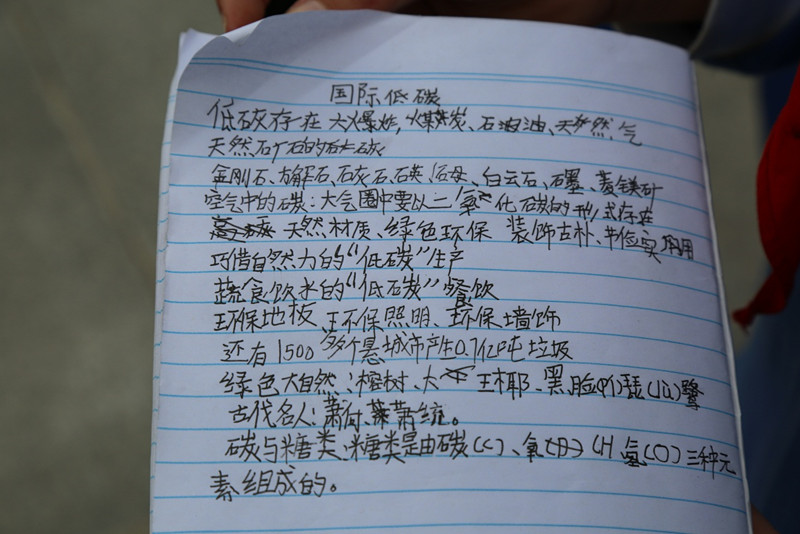 国际低碳
低碳存在大爆炸,煤炭、石油、天然气
天然矿石的碳
金刚石、方解石、石灰石、石英、云母、白云石、石墨、菱镁矿
空气中的碳:大气圈中要以二氧化碳的形式存在
天然材质、绿色环保 装饰古朴、节俭实用
巧借自然力的“低碳”生产
蔬食饮水的“低碳”餐饮
环保地板、环保照明、环保墙饰
还有1500多个县城市产生0.7亿吨垃圾
绿色大自然:榕树、大王椰、黑脸(pí)琵(lù)鹭
古代名人:萧何、萧统。
碳与糖类:糖类是由碳(C)、氧 (H 氢(O)三种元
素组成的。